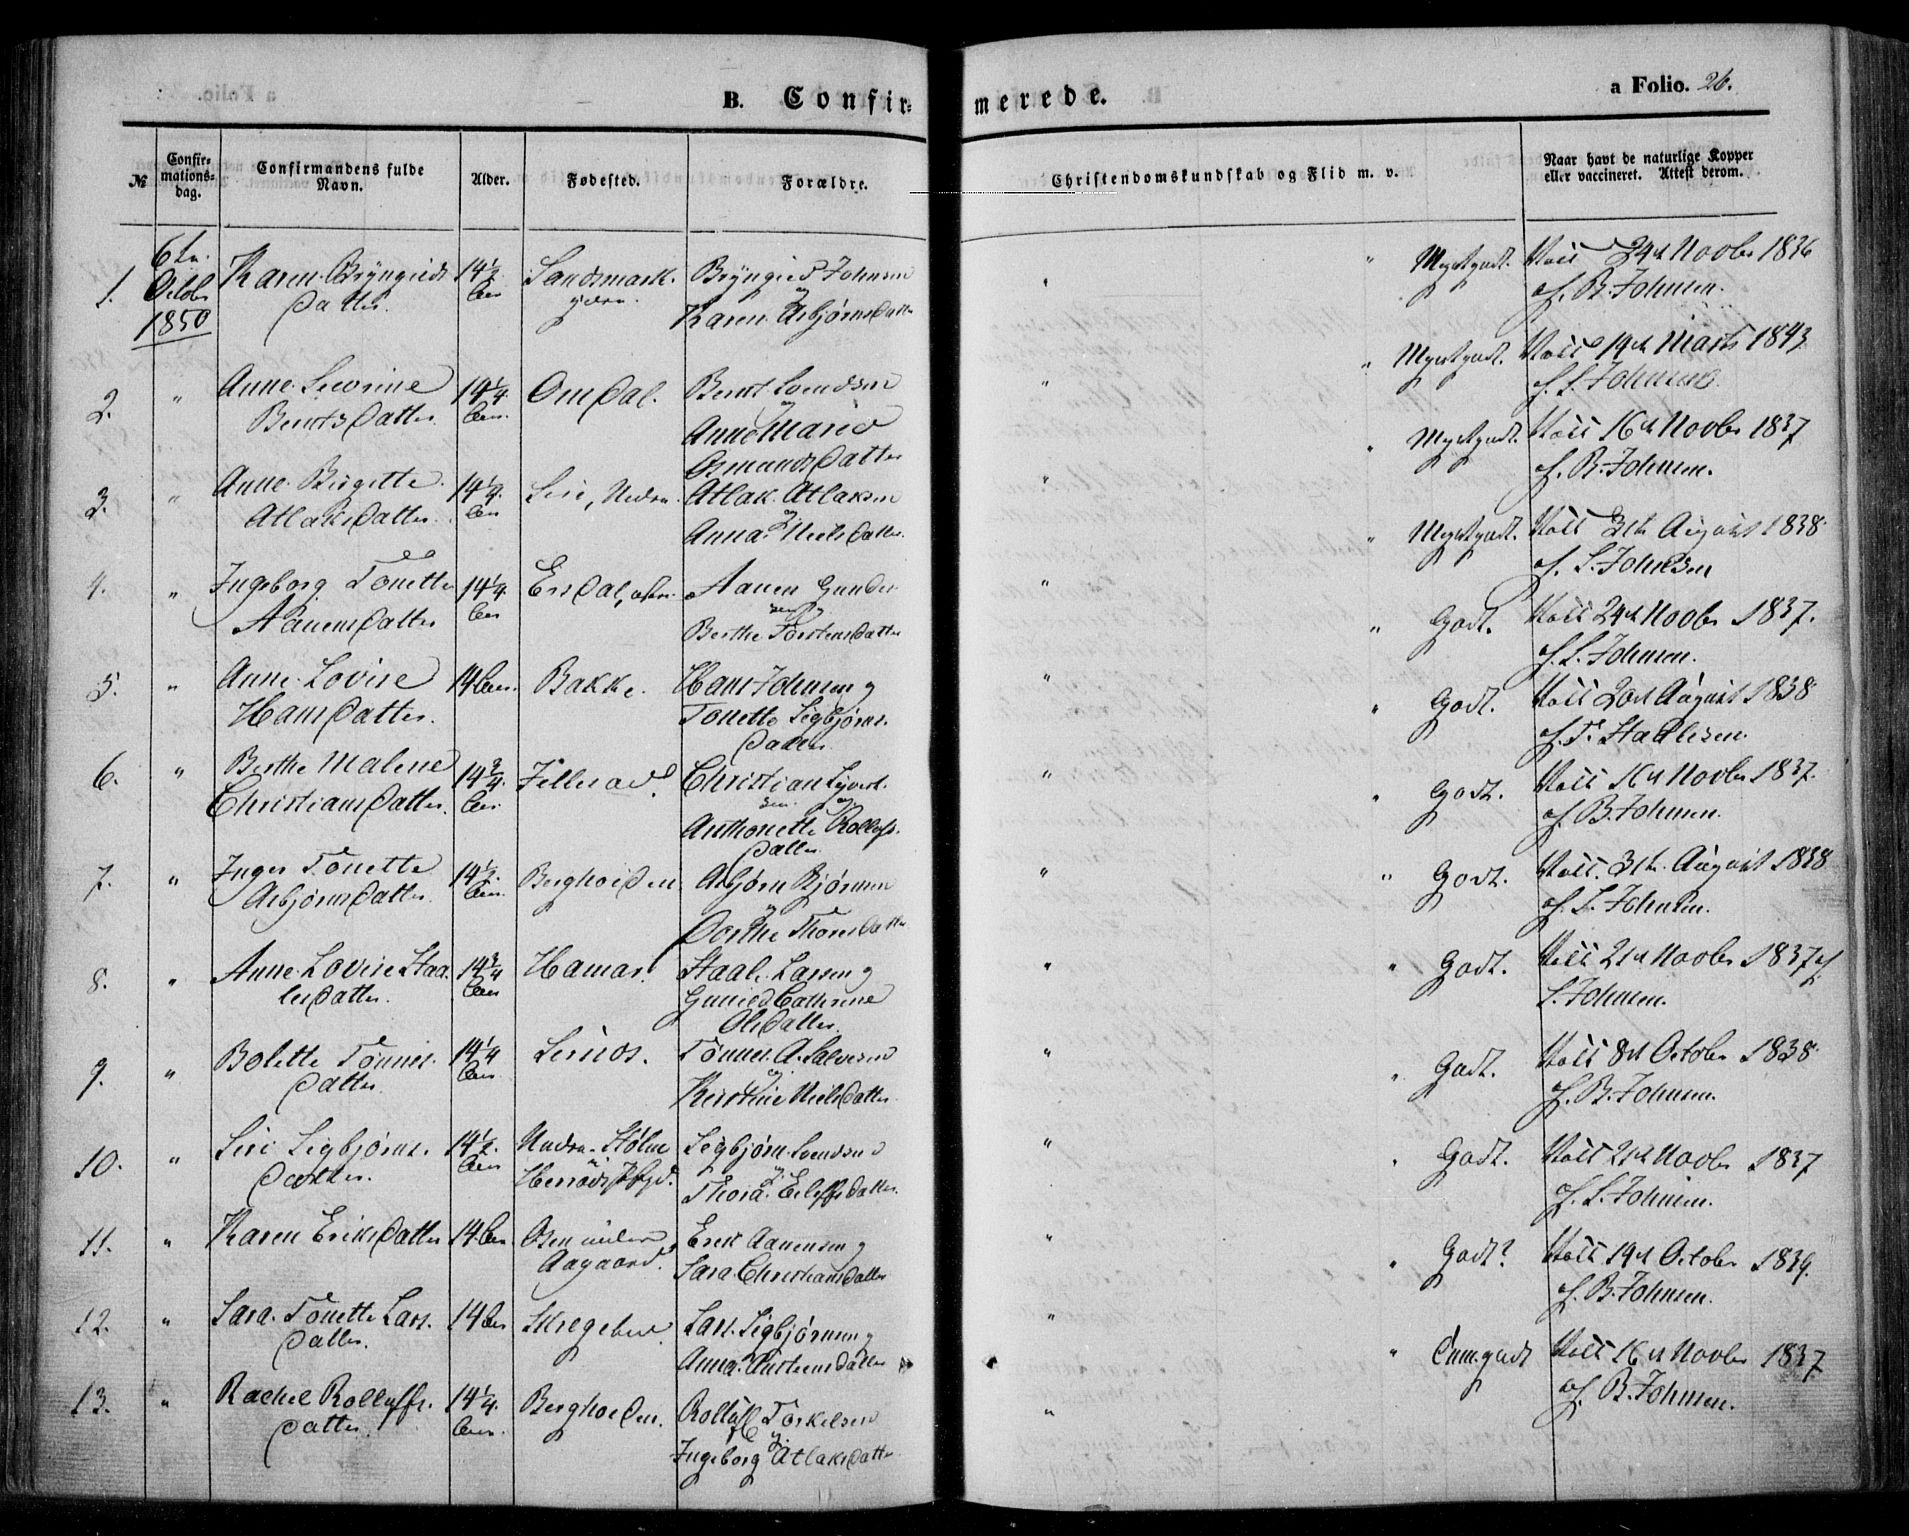 B. Confir=
merede.
a Folio. 26.
№
Confir=
mations=
dag.
Confirmandens fulde
Navn.
Alder.
Fødested.
Forældre.
Christendomskundskab og Flid m. v.
Naar havt de naturlige Kopper
eller vaccineret. Attest derom.
1.
6te
Octbr
1850
Karen Bryngieds
Datter.
14½
Aar
Sandsmark
ydre.
Bryngied Johnsen
og
Karen Asbjørns Datter
" Megetgodt.
Vacc. 24d Novbr 1836
af B. Johnsen.
2. "
Anne Severine
Bernts Datter
14¼
Aar.
Omdal.
Bernt Svendsen
og
Anne Marie
Osmunds Datter
" Megetgodt.
Vacc. 19d Marts 1843
af S. Johnsen.
3. "
Anne Birgette
Atlaks Datter.
14¼
Aar
Sire, Nedre.
Atlak Atlaksen
og
Anna Niels Datter.
" Megetgodt.
Vacc 16d Novbr 1837
af B. Johnsen.
4. "
Ingeborg Tonette
Aanens Datter
14¼
Aar
Ersdal,
Aanen Gunder
sen og
Berthe Torstens Datter
" Megetgodt.
Vacc 3th August 1838
af S. Johnsen
5. "
Anne Lovise
Hans Datter.
14 Aar.
Bakke.
Hans Johnsen og
Tonette Sigbjørns.
Datter.
" Godt.
Vacc 24d Novbr 1837.
af S. Johnsen.
6. "
Berthe Malene
Christians Datter.
14¾
Aar.
Fillerad
Christian Syvert
sen og
Anthonette Rollefs.
Datter
" Godt.
Vacc 20d August 1838
af T. Staalesen.
7. "
Inger Tonette
Asbjørns Datter.
14½
Aar.
Berghoiden
Asbjørn Bjørnsen
og
Dorthe Thores Datter
" Godt.
Vacc 16d Novbr 1837.
af B. Johnsen.
8. "
Anne Lovise Staa
les Datter.
14¾
Aar
Hamar.
Staale Larsen og
Guried Cathrine
Ols Datter.
" Godt.
Vacc. 3th August 1838
af S. Johnsen.
9. "
Bolette Tønnes.
Datter.
14¼
Aar
Sirnos.
Tønnes A. Salvesen
og
Kirstine Niels Datter
" Godt.
Vacc 21d Novbr 1837 af
S. Johnsen.
10. "
Siri Sigbjørns.
Datter.
14½
Aar
Nedre Stølen
i
Sigbjørn Svendsen
og
Thora Eilefs Datter.
" Godt.
Vacc 8d October 1838
af B. Johnsen.
11. "
Karen Eriks Datter
14 Aar.
Osen under
Aagaard.
Erik Aanensen og
Sara Christians Datter
" Godt.
Vacc 21d Novbr 1837
af S. Johnsen.
12. "
Sara Tonette Lars.
Datter.
14 Aar
Skregelied
Lars Sigbjørnsen og
Anna Datter
" Godt?
Vacc 19d October 1839.
af B. Johnsen.
13. "
Rachel Rollefs.
Datter.
14¼
Aar.
Berghoiden.
Rollef Torkelsen
og
Ingeborg Atlaks Datter
" Tem. godt
Vacc 16d Novbr 1837
af B. Johnsen.